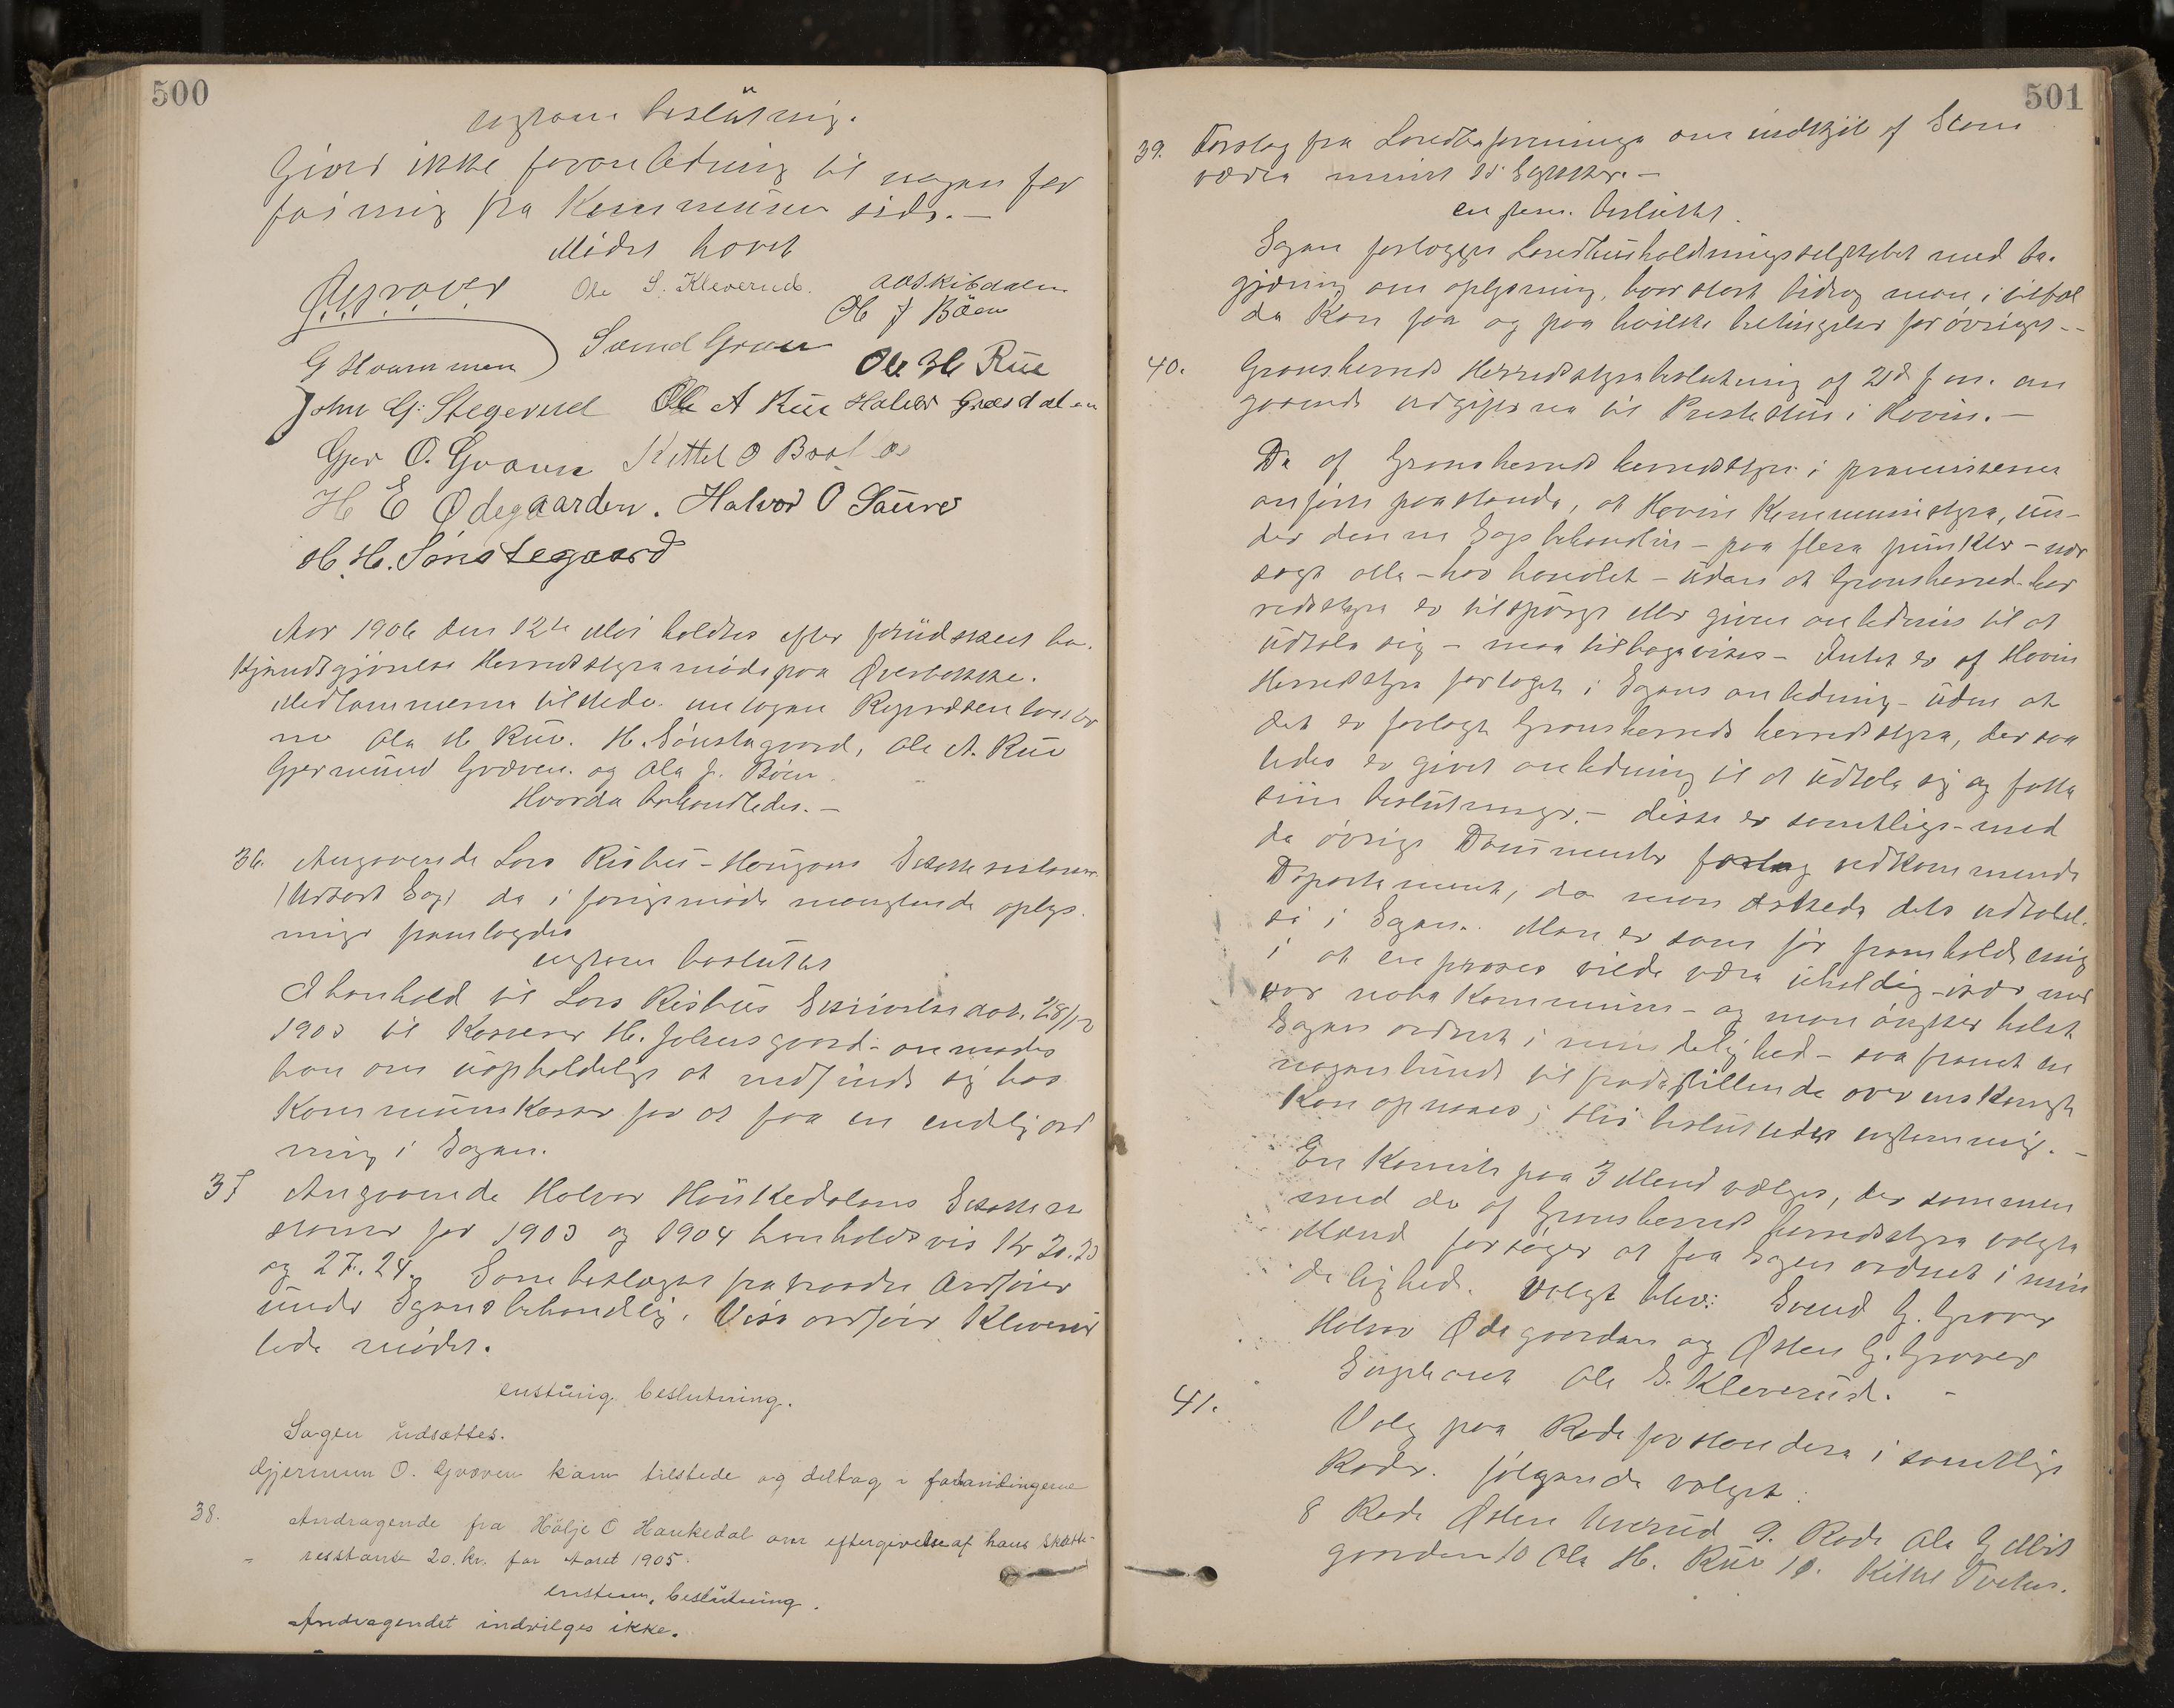 500
enstem beslutning.
Giver ikke foranledning til nogen for
føining fra Kommunens side.—
Mødet hævet
Ole S. Kleverud. AOSkibdalen
Ole J Böen
G Hvammen Svend Graver Ole H. Rue
John G. Stegerud Ole A Rue Halvor Græsdalen
Gjer O. Graven Kittel O
H E Ødegaarden. Halvor O Saure
H. H. Sønstegaard
Aar 1906 den 12te Mai holdtes efter forudskeet be-
kjendtgjørelse Herredsstyremøde paa Øverbekke.
Medlemmerne tilstede undtagen Repræsentanter
ne Ole H Rue. H. Sønstegaard, Ole A. Rue
Gjermund Græven. og Ole J. Böen
Hvorda behandledes.—
36. Angaaende Lars Risbu-Haugans Skatterestanser
(Udsat Sag) de i forrige møde manglende oplys-
ninger fremlagdes
enstem besluttet
I henhold til Lars Risbus Skrivelse dat. 28/12
1905 til Kasserer H. Jolensgaard anmodes
han om uopholdelig at indfinde sig hos
Kommunekassr for at faa en endelig ord
ning i Sagen.
37 Angaaende Halvor Haukedalens Skattere
stanser for 1903 og 1904 henholdsvis Kr 20.20
og 27.24. Some beslægtet fratraadte Ordfører
under Sagens behandling. Vise ordfører Kleverud
lede mødet.
enstemig beslutning.
Sagen udsættes.
Gjermun O. Græven kom tilstede og deltog i forhandlingerne
38. Andragende fra Hölje O Haukedal om eftergivelse af hans Skatte-
resstanse 20. kr. for Aaret 1905.
enstem. beslutning.
Andragendet indvilges ikke.
501
39. Forslag fra Landboforeninga om indkjöb af Stam
enstem. besluttet.
Sagen forlægges Landhusholdningsselskabet med be-
gjæring om oplysning, hvor stort bidrag man i tilfæl
de Kan faa og paa hvilke betingelser forøvrigt.—
40. Gransherreds Herredsstyrebeslutning af 21de f. m. an
gaaende udgifterne til Prestestue i Hovin.—
Da af Gransherreds herredsstyre i præmisserne
anførte paastande, at Hovin Kommunestyre, un-
der denne Sags behandling — paa flere punkter — når
sagt alle — har handlet — uden at Gransherred her
redsstyre er tilspurgt eller given anledning til at
udtale sig — maa tilbagevises — Intet er af Hovin
Herredsstyre foretaget i Sagens anledning — uden at
det er forelagt Gransherreds herredsstyre, der saa
ledes er givet anledning til at udtale sig og fatte
sine beslutninger.— disse er samtlige — med
de øvrige Dokumenter forelag vedkommende
Departement, da man æskede dets udtalel-
se i Sagen. Man er som før fremholdt enig
i at en proces vilde være uheldig — især med
vor nabo Kommune — og man ønsker helst
Sagen ordnet i mindelighed — saa fremt en
nogenlunde tilfredsstillende overenskomst
Kan opnaaes; thi besluttedes enstemmig.—
En Komite paa 3 Mend vælges, der sammen
med de af Gransherred herredsstyre valgte
Mænd forsøger at faa Sagen ordnet i min
delighed. Valgt blev: Svend G. Graver
Halvor Ødegaarden og Østen G. Graver
Supleant Ole S. Kleverud. —
41. Valg paa Rodeforstandere i samtlige
Roder. følgende valgtes:
8 Rode Østen Uverud 9. Rode Ole G Midt
gaarden 10 Ole H. Rue 11. Kittel Tveten.